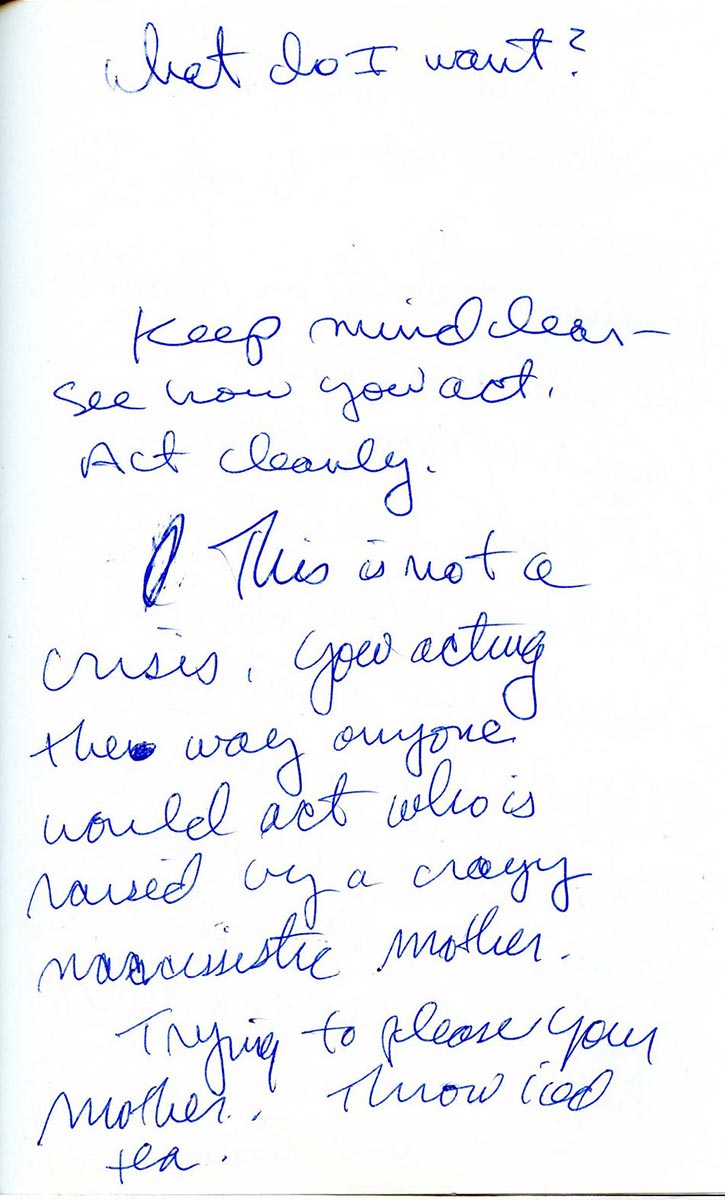 What do I want?
Keep mind clear—
See how you act.
Act cleanly.
This is not a
crisis. You acting
the way anyone
would act who is
raised by a crazy
narcissistic mother.
Trying to please your
mother. Throw iced
tea.